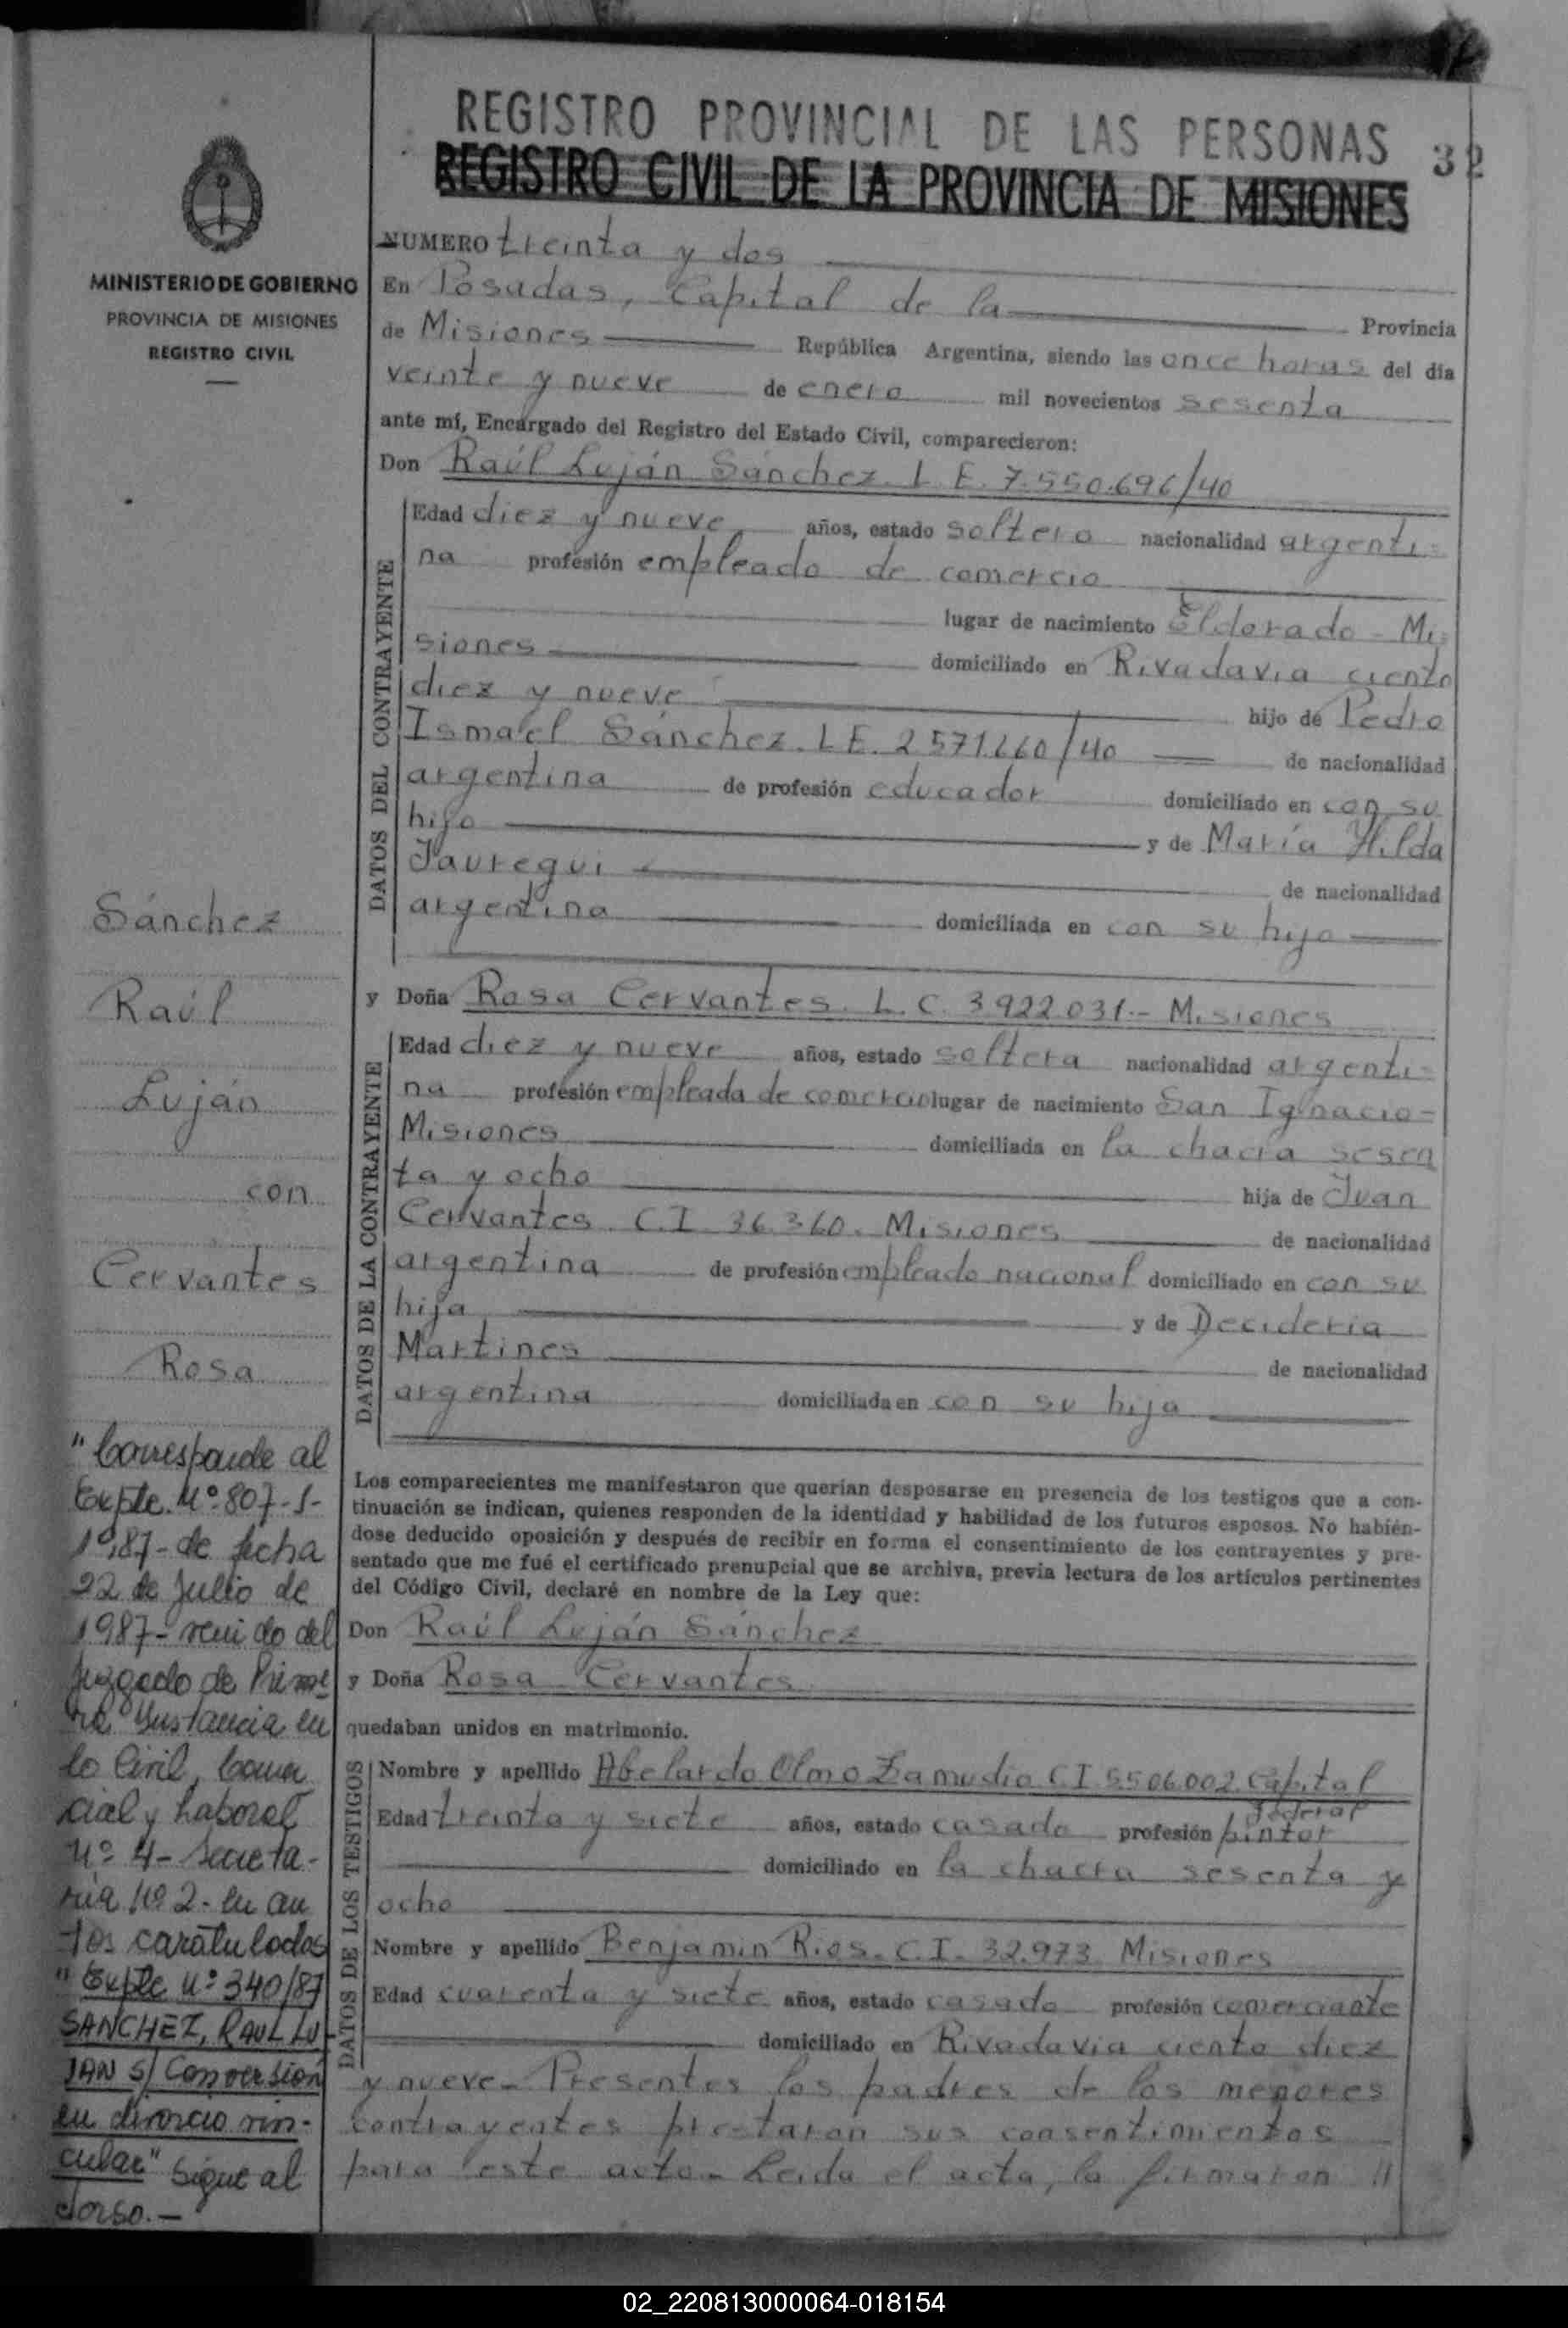 REGISTRO PROVINCIAL DE LAS PERSONAS
REGISTRO CIVIL DE LA PROVINCIA DE MISIONES
32
MINISTERIO DE GOBIERNO
PROVINCIA DE MISIONES
REGISTRO CIVIL
NUMERO treinta y dos
En Posadas, Capital de la Provincia
de Misiones República Argentina, siendo las once horas del día
veinte y nueve de enero mil novecientos sesenta
ante mí, Encargado del Registro del Estado Civil, comparecieron:
Don Raúl Luján Sánchez. L. E. 7.550.696/40
DATOS DEL CONTRAYENTE
Edad diez y nueve años, estado soltero nacionalidad argenti-
na profesión empleado de comercio
lugar de nacimiento Eldorado - Mi-
siones domiciliado en Rivadavia ciento
diez y nueve hijo de Pedro
Ismael Sánchez. L E. 2.571.660/40 de nacionalidad
argentina de profesión educador domiciliado en con su
hijo y de María Hilda
Jauregui de nacionalidad
argentina domiciliada en con su hijo
y Doña Rosa Cervantes. L. C. 3.922.031.- Misiones
DATOS DE LA CONTRAYENTE
Edad diez y nueve años, estado soltera nacionalidad argenti-
na profesión empleada de comercio lugar de nacimiento San Ignacio-
Misiones domiciliada en la chacra sesen
ta y ocho hija de Juan
Cervantes. C.I. 36.360. Misiones de nacionalidad
argentina de profesión empleado nacional domiciliado en con su
hija y de Decideria
Martines de nacionalidad
argentina domiciliada en con su hija
Los comparecientes me manifestaron que querían desposarse en presencia de los testigos que a con-
tinuación se indican, quienes responden de la identidad y habilidad de los futuros esposos. No habién-
dose deducido oposición y después de recibir en forma el consentimiento de los contrayentes y pre-
sentado que me fué el certificado prenupcial que se archiva, previa lectura de los artículos pertinentes
del Código Civil, declaré en nombre de la Ley que:
Don Raúl Luján Sánchez
y Doña Rosa Cervantes
quedaban unidos en matrimonio.
DATOS DE LOS TESTIGOS
Nombre y apellido Abelardo Olmo Zamudio C I. 5.506.002 Capital
Federal
Edad treinta y siete años, estado casado profesión pintor
domiciliado en la chacra sesenta y
ocho
Nombre y apellido Benjamin Rios. C.I. 32.973 Misiones
Edad cuarenta y siete años, estado casado profesión comerciante
domiciliado en Rivadavia ciento diez
y nueve- Presentes los padres de los menores
contrayentes prestaron sus consentimientos
para este acto- Leida el acta, la firmaron //
Sánchez
Raúl
Luján
con
Cervantes
Rosa
"Corresponde al
Expte. Nº 807-S-
1987- de fecha
22 de Julio de
1987- venido del
Juzgado de Prime
ra Instancia en
lo Civil, Comer
cial y Laboral
Nº 4- Secreta-
ria Nº 2- en au
tos caratulados
"Expte Nº 340/87
SANCHEZ, RAUL LU-
JAN S/ Conversión
en divorcio vin-
cular" sigue al
dorso.-
02_220813000064-018154